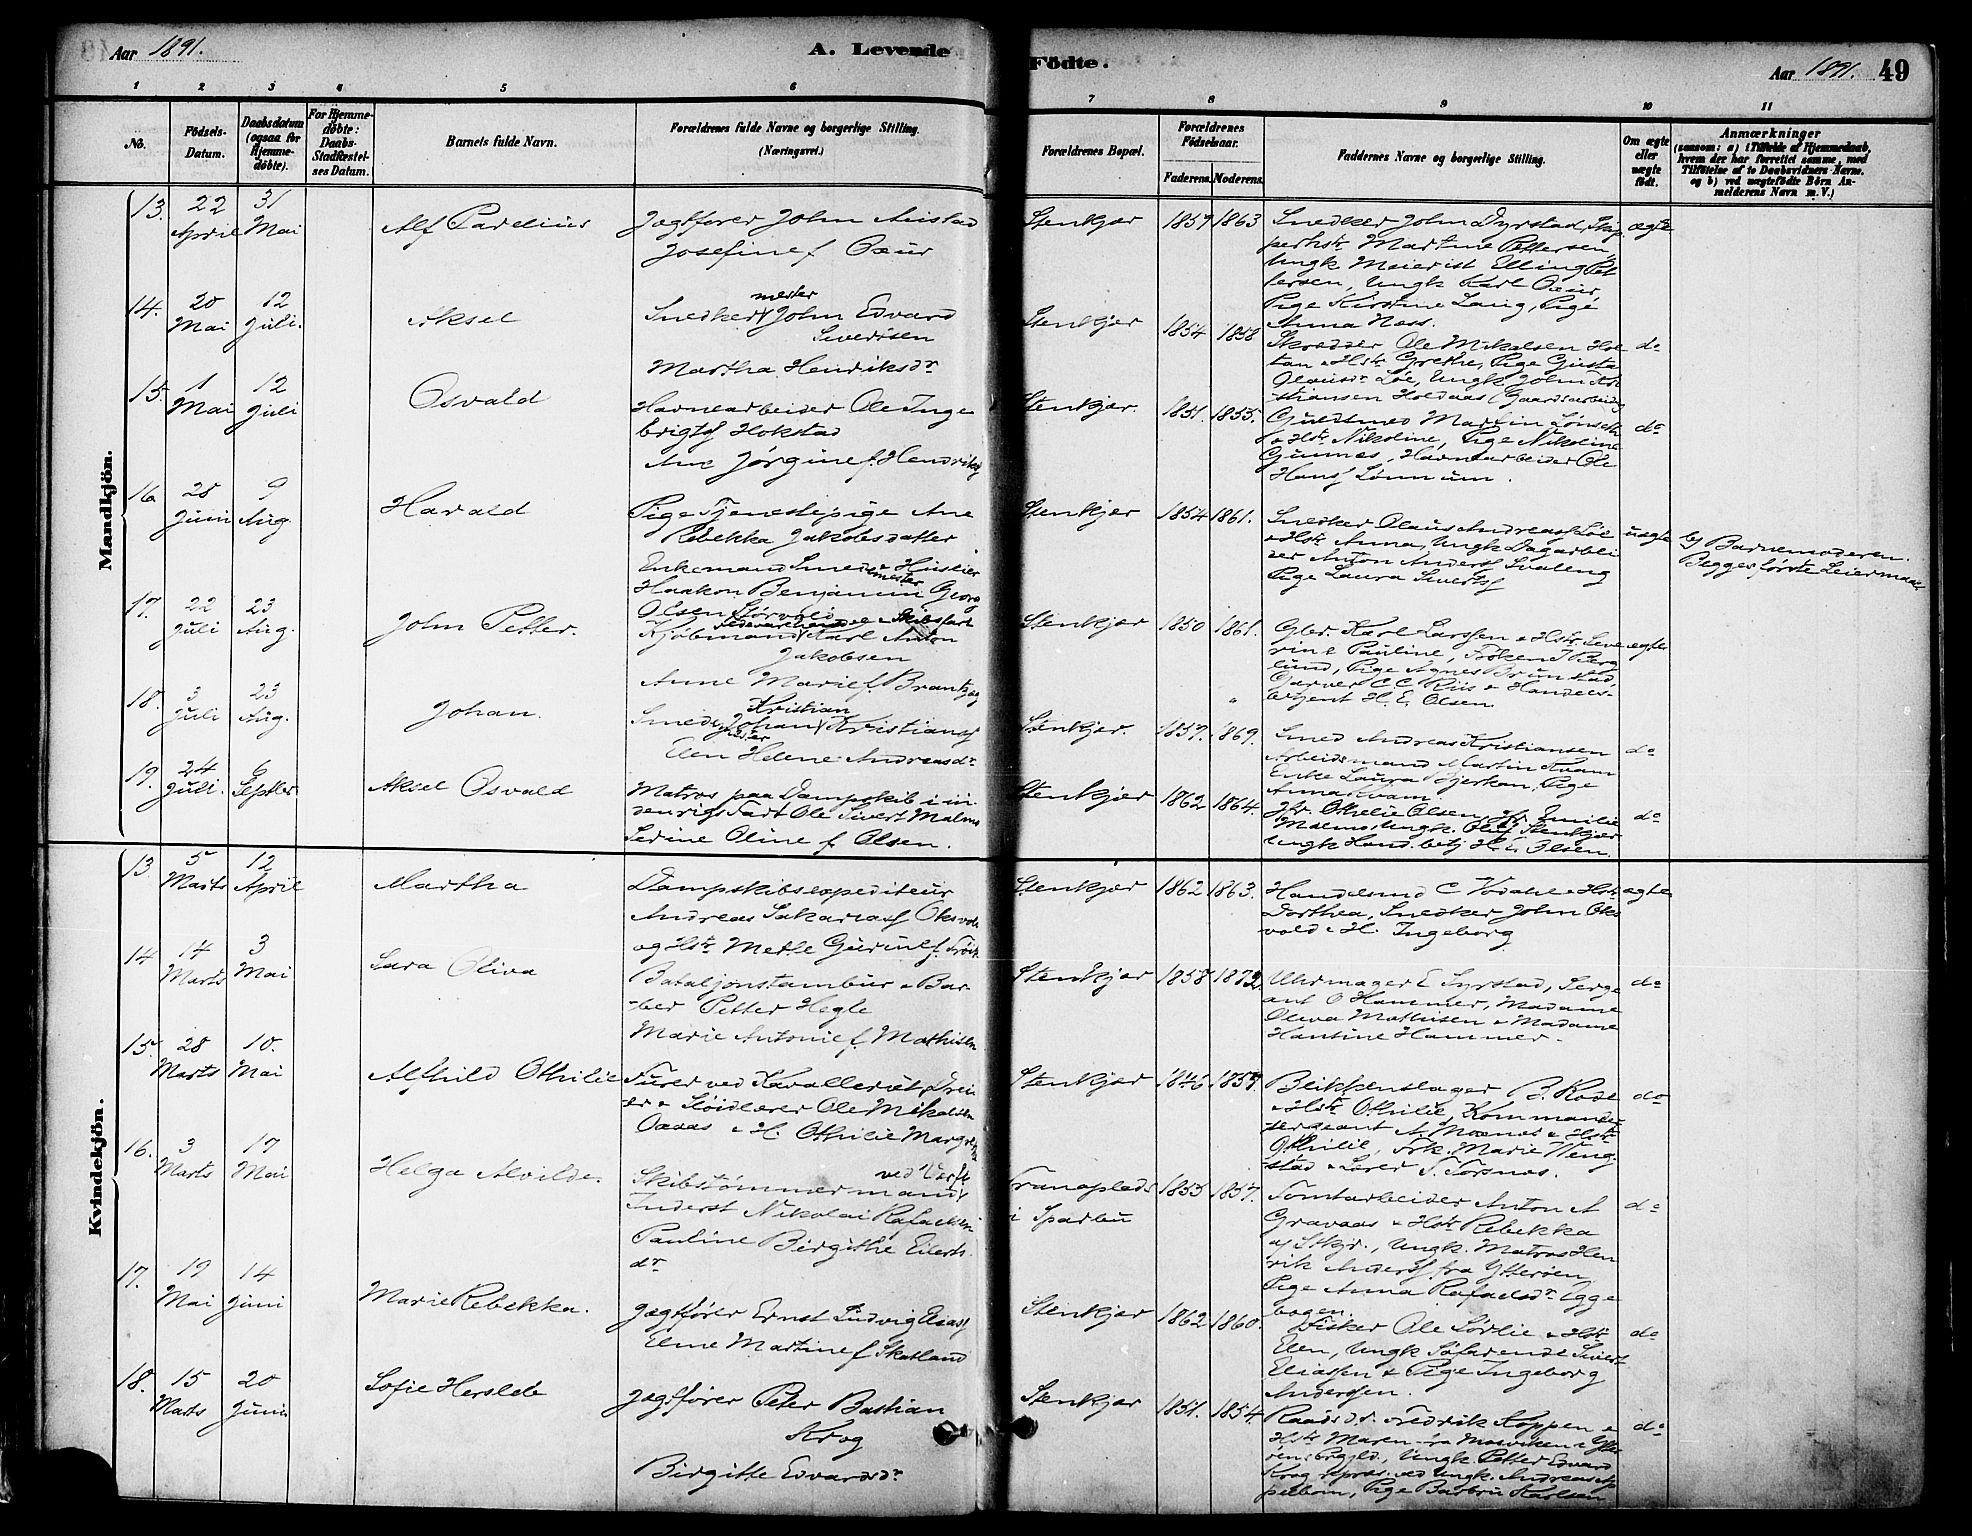 Aar 1891.
A. Levende
Födte.
Aar 1891. 49
1 2 3 4 5 6 7 8 9 10 11
No.
Födsels-Datum.
Daabsdatum (ogsaa for Hjemmedöbte).
For Hjemmedöbte: Daabs-Stadfæstelses Datum.
Barnets fulde Navn.
Forældrenes fulde Navne og borgerlige Stilling.
(Næringsvei.)
Forældrenes Bopæl.
Forældrenes Födselsaar.
Faderens. Moderens.
Faddernes Navne og borgerlige Stilling.
Om ægte eller uægte födt.
Anmærkninger
(saasom: a) i Tilfælde af Hjemmedaab, hvem der har forrettet samme, med Tilföielse af to Daabsvidners Navne. og b) ved uægtefödte Börn Anmelderens Navn m. V.)
Mandkjön.
13. 22 April 31 Mai
Alf Parelius
Jagtfører John
Josefine f.
Stenkjær 1857 1863
Snedker John Dyrstad, Skip
perhstr Martine Pettersen
Ungk Meierist Elling Pet
tersen, Ungk Karl
Pige Kirstine Laug, Pige
Anna Næss.
ægte
14. 20 Mai 12 Juli.
Aksel
Snedkermester John Edvard
Sivertsen
Martha Henriksdr
Stenkjær 1854 1858
Skrædder Ole Mikalsen Hoe
tan & Hstr Grethe, Pige Gusta
Olausdr Løe, Ungk John Kri
stiansen Holdaas (Gaardsarbeider
do
15. 1 Mai 12 Juli
Osvald
Havnearbeider Ole Inge
brigtsf Hokstad
Ane Jørgine f. Hendriksf
Stenkjær. 1851. 1855.
Guldsmed Martin Lønseth
& Hstr Nikoline, Pige Nikoline
Gunnes, Havnearbeider Ole
Hansf Lønnum.
do
16 28 Juni 9 Aug.
Harald
Pige Tjenestepige Ane
Rebekka Jakobsdatter
Enkemand Smedemester & Huseier
Haakon Benjamin Georg
Olsen Størvold
Stenkjær 1854 1861.
Snedker Olaus Andreasf Løe
& Hstr Anna, Ungk Dagarbei
der Anton Andersf Svaleng
Pige Laura Sivertsf
uægte
b) Barnemoderen.
Begges første Leiermaal
17. 22 Juli 23 Aug.
John Petter.
Kjøbmand Karl Anton
Jakobsen
Anne Marie f. Brantzæg
Stenkjær 1850 1861.
Gbr. Karl Larssen & Hstr Seve
rine Pauline, Frøken J Berg
lund, Pige Agnes Brunstad
Garver C C Riis & Handels-
betjent H. E. Olsen.
ægte
18. 3 Juli 23 Aug.
Johan.
Smed Johan Kristian Kristiansf
Elen Helene Andreasdr
Stenkjær. 1857. 1869.
Smed Andreas Kristiansen
Arbeidsmand Martin Kvam
Enke Laura Bjerkan, Pige
Anna Kvam.
do
19. 24 Juli. 6 Septbr
Aksel Osvald
Matros paa Dampskib i in
denrigs Fart Ole Sivert Malmo
Serine Oline f Olsen.
Stenkjær 1862 1864.
Jfr. Othelie Olsen, Jfr. Emilie
Malmo, Ungk. Oluf Stenkjær
Ungk Hand. betj H. E. Olsen.
do
Kvindekjön.
13 5 Marts 12 April
Martha
Dampskibsexpediteur
Andreas Sakariasf Oksvold
og Hstr Mette Gurine f.
Stenkjær 1862 1863.
Handelsmd C Vodahl & Hstr
Dorthea, Snedker John Oks
vold & H. Ingeborg
ægte
14 14 Marts 3 Mai
Sara Oliva
Bataljonstambur & Bar
ber Petter Hegle
Marie Antonie f. Mathisen
Stenkjær 1858 1872.
Uhrmager E Syrstad, Serge
ant O Hammer, Madame
Oliva Mathisen & Madame
Hantine Hammer.
do
15. 28 Marts 10. Mai
Alfhild Othilie
Furer ved Kavalleriet, Drei
er & Sløidlærer Ole Mikalsen
& H. Othilie Margrethe
Stenkjær 1846 1857.
Blikkenslager B. Rose
& Hstr Othilie, Kommandeer
sergeant A Moenes & Hstr
Othilie, Frk. Marie Weng
stad & Lærer T. Forsnæs.
do
16. 3 Marts 17 Mai
Helga Alvilde.
Skibstømmermand ved Værft
Inderst Nikolai Rafaelsen
Pauline Birgithe Eilerts
dr
Tranaplads
i Sparbu
1855 1857.
Tomtarbeider Anton A
Gravaas & Hstr Rebekka
af Stkjr., Ungk. Matros Hen
rik Andersf fra Ytterøen
Pige Anna Rafaelsdr Egge
bogen.
do
17. 19 Mai 14 Juni
Marie Rebekka.
Jagtfører Ernst Ludvig Eliasf
Elne Martine f Skatland
Stenkjær 1862 1860.
Fisker Ole Sørlie & Hstr
Elen, Ungk Søfarende Sivert
Eliassen & Pige Ingeborg
Anderssen.
do
18. 15 Marts 20 Juni
Sofie Herslebe
Jagtfører Peter Bastian
Krog
Birgitte Edvardsdr
Stenkjær 1851. 1854.
Fredrik Koppen &
Hstr Maren fra Mosviken i Ytter
øens Prgjld., Ungk. Petter Edvard
Krog ved Ungk. Andreas Ap
pelbom, Pige Barbru Karlsen
do